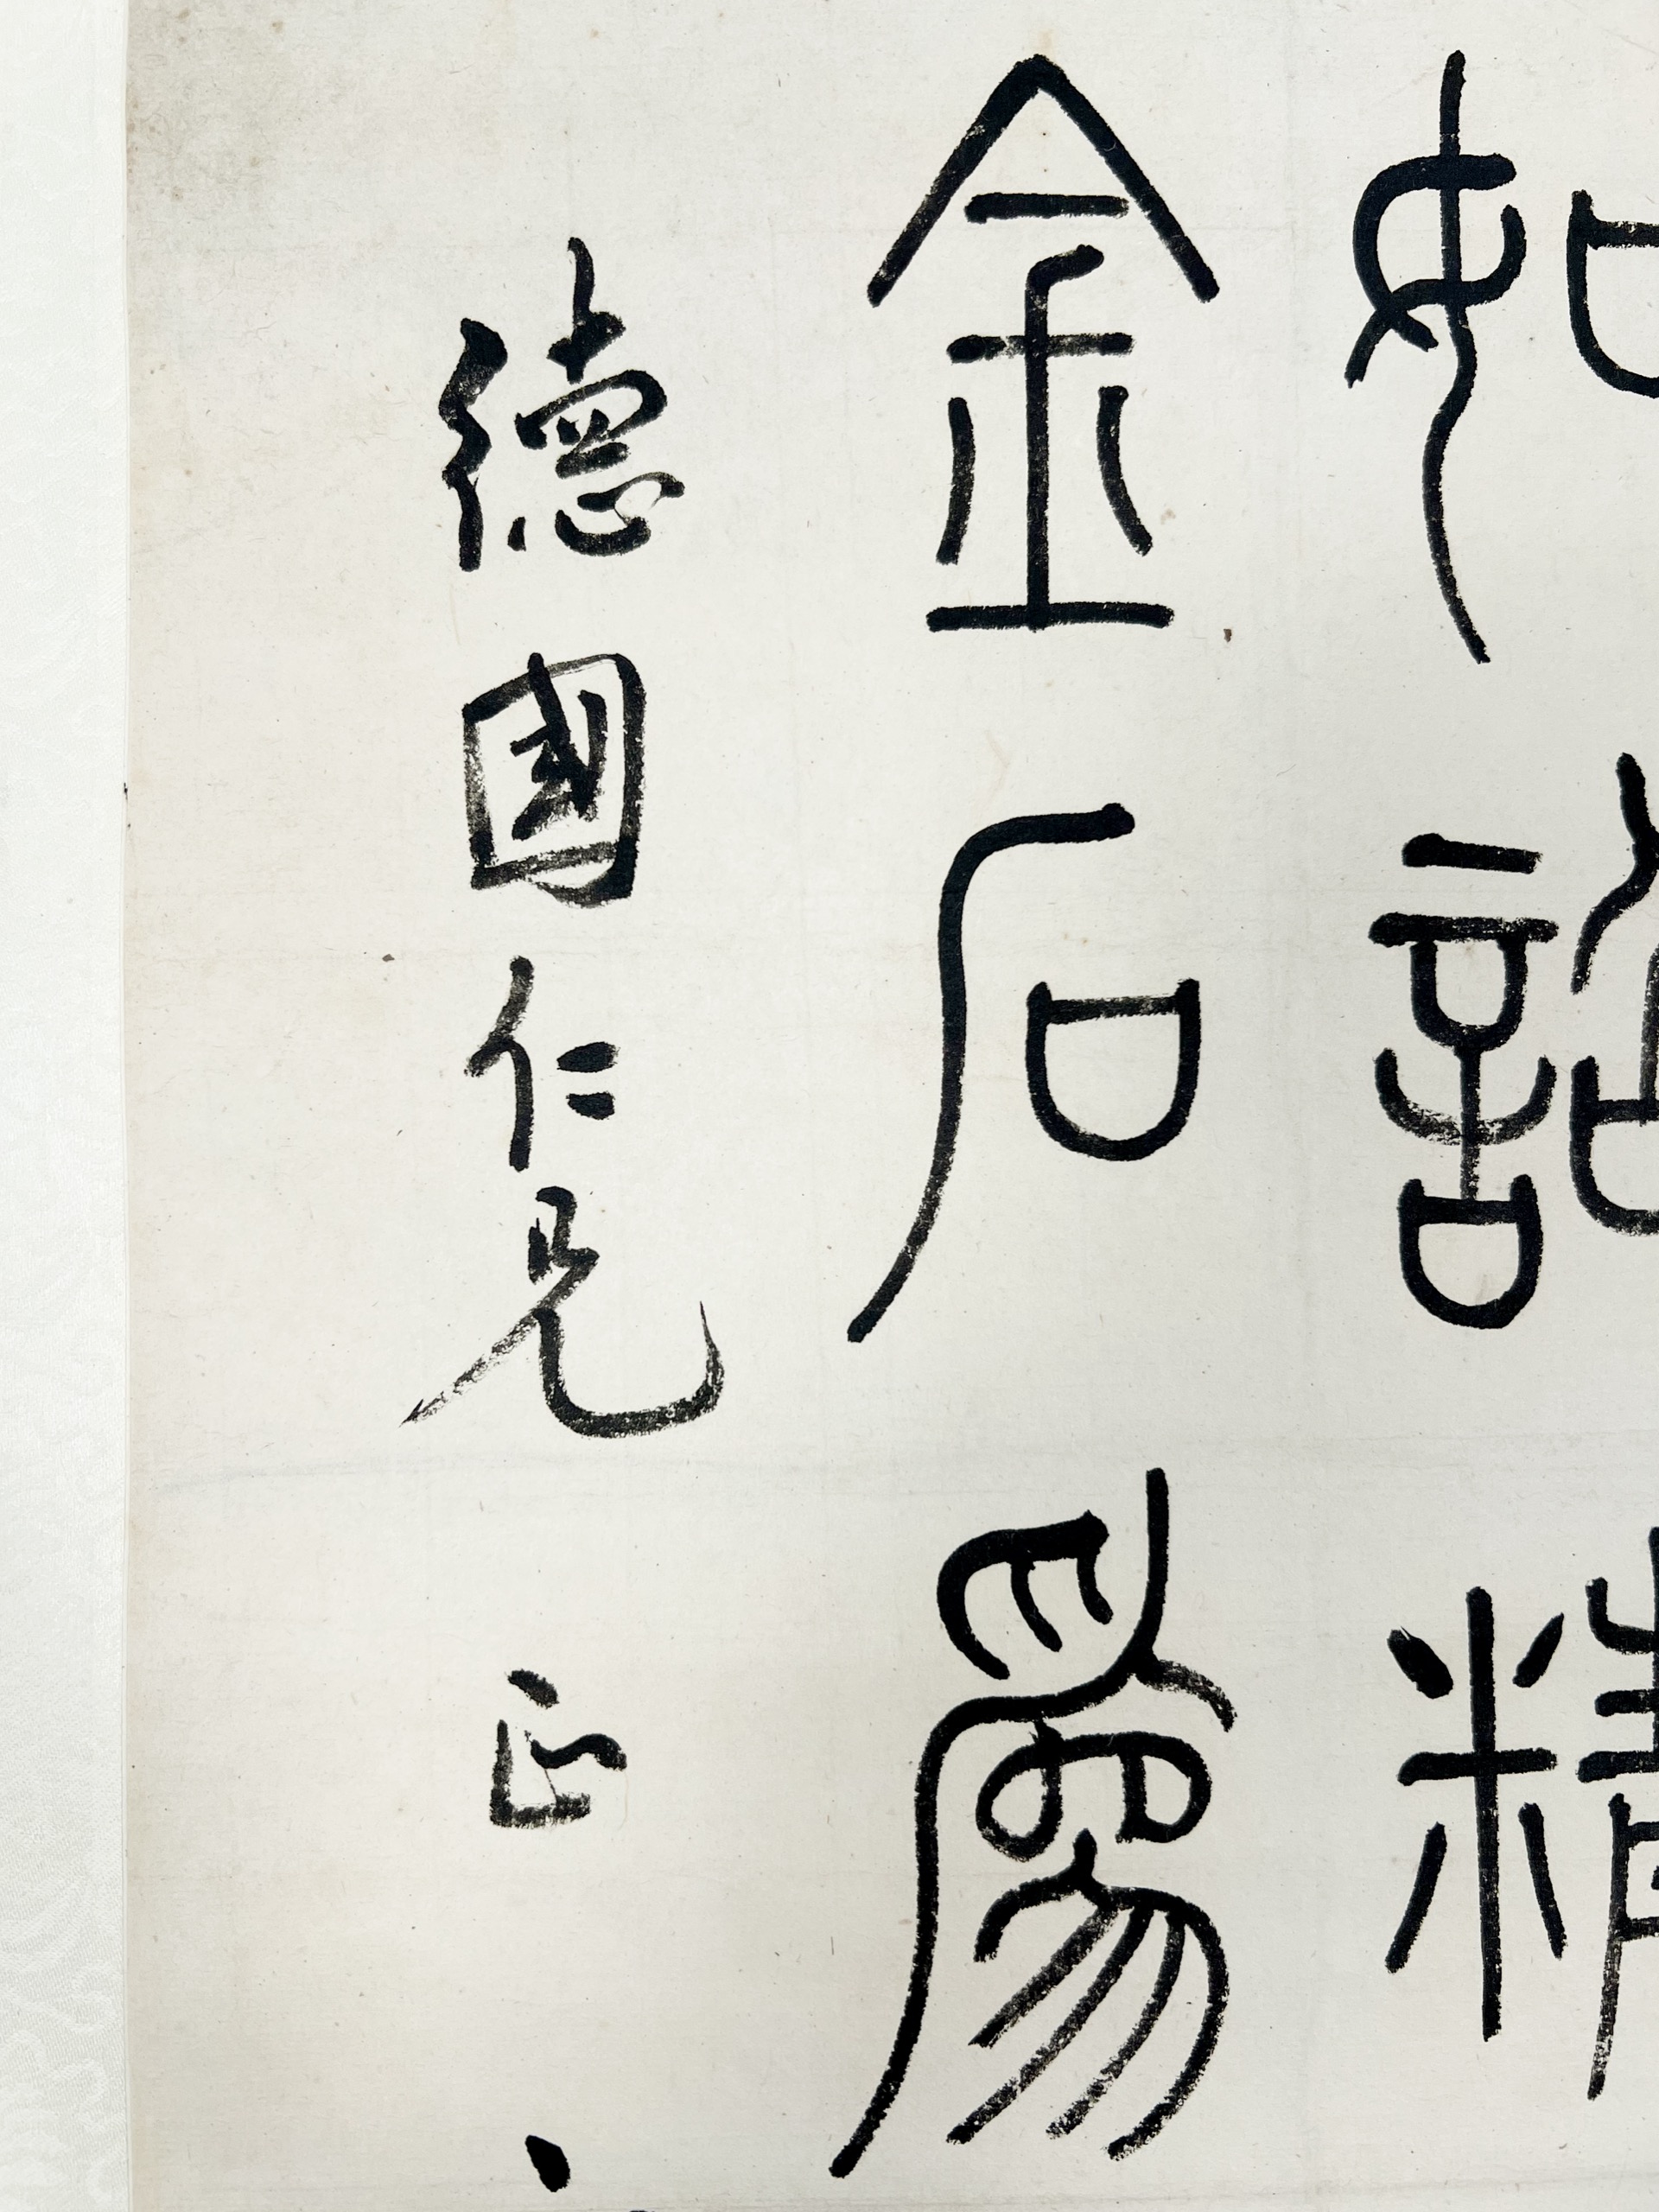 如 精
金石為
德國仁兄 正